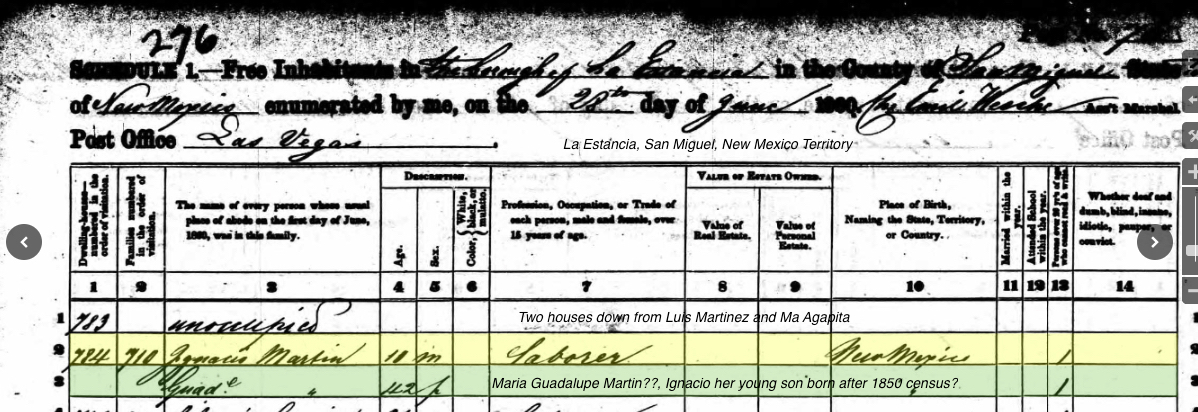 276
SCHEDULE 1.—Free Inhabitants in the borough of La Estancia in the County of San Miguel State
of New Mexico enumerated by me, on the 28th day of June 1860. Ass't Marshal
Post Office Las Vegas.
La Estancia, San Miguel, New Mexico Territory
Post Office
Dwelling-houses—numbered in the order of visitation.
Families numbered in the order of visitation.
The name of every person whose usual place of abode on the first day of June, 1860, was in this family.
DESCRIPTION.
Age.
Sex.
Color, { White, black, or mulatto.
Profession, Occupation, or Trade of each person, male and female, over 15 years of age.
VALUE OF ESTATE OWNED.
Value of Real Estate.
Value of Personal Estate.
Place of Birth, Naming the State, Territory, or Country.
Married within the year.
Attended School within the year.
Persons over 20 y'rs of age who cannot read & write.
Whether deaf and dumb, blind, insane, idiotic, pauper, or convict.
1 2 3 4 5 6 7 8 9 10 11 12 13 14
1 783 unoccupied Two houses down from Luis Martinez and Ma Agapita 1
2 784 710 Ygnacio Martin 10 m Laborer New Mexico 1 2
3 Guade " 42 f Maria Guadalupe Martin??, Ignacio her young son born after 1850 census? " 1 3